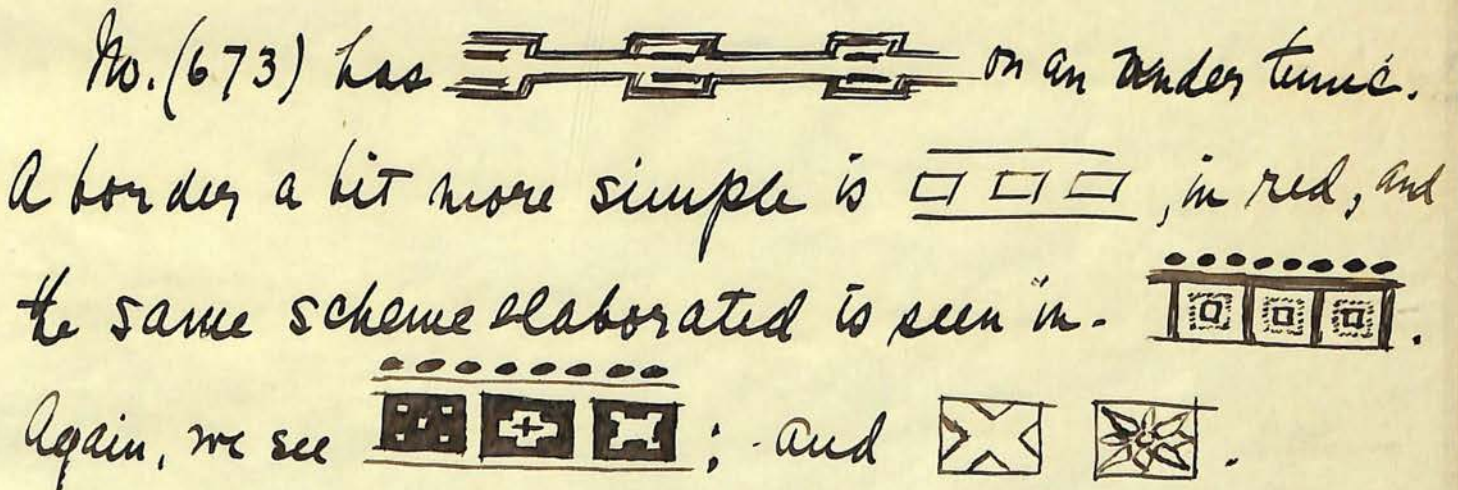 No. (673) has on an under tunic.
A border a bit more simple is , in red, and
the same scheme elaborated is seen in .
Again, we see ; and .